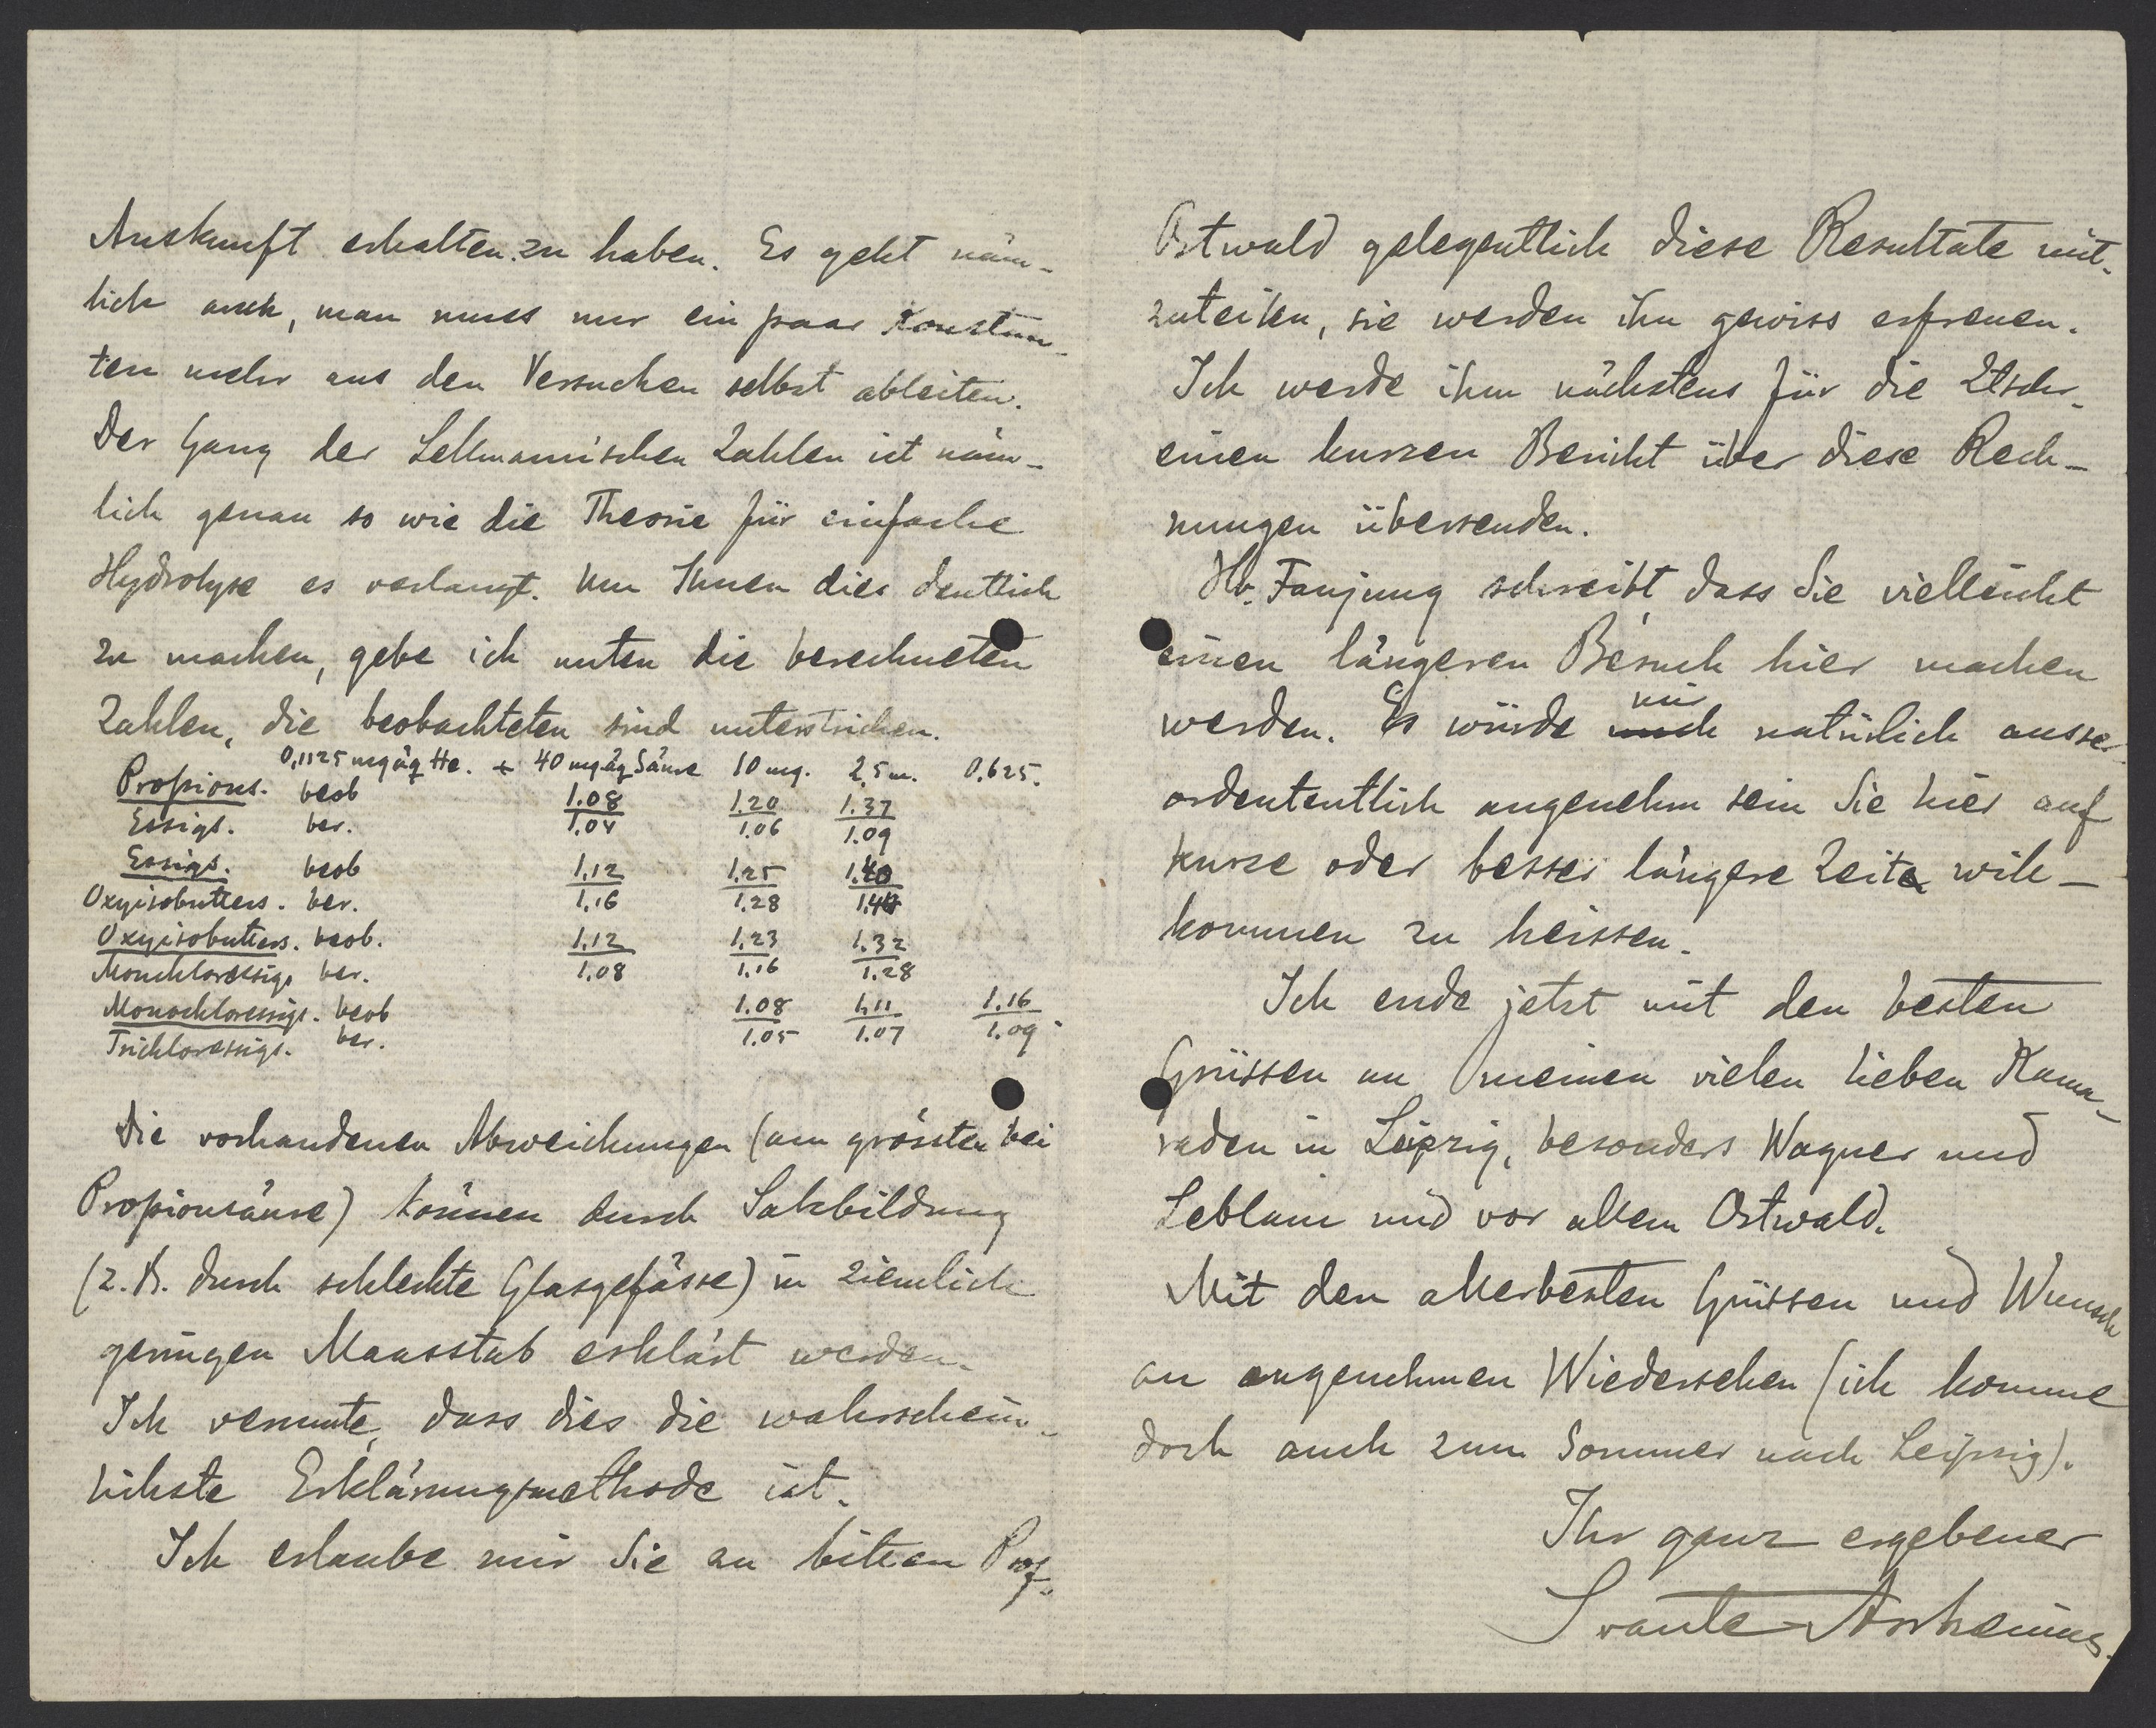 Auskunft erhalten zu haben. Es geht näm-
lich auch, man muss nur ein paar Konstan-
ten mehr aus den Versuchen selbst ableiten.
Der Gang der Lellmannischen Zahlen ist näm-
lich genau so wie die Theorie für einfache
Hydrolyse es verlangt. Um Ihnen dies deutlich
zu machen, gebe ich unten die berechneten
Zahlen, die beobachteten sind unterstrichen.
0,1125 mgäq He. + 40 mgäq Säure 10 mg. 2,5 m. 0.625.
Propions. beob 1.08 1.20 1.37
Essigs. ber. 1.04 1.06 1.09
Essigs. beob 1.12 1.25 1.40
Oxyisobutters. ber. 1.16 1.28
Oxyisobutters. beob. 1.12 1.23 1.32
Monchloressigs ber. 1.08 1.16 1.28
Monochloressigs. beob 1.08 1.11 1.16
Trichloressigs. ber. 1.05 1.07 1.09.
Die vorhandenen Abweichungen (am grössten bei
Propionsäure) können durch Salzbildung
(z. B. durch schlechte Glasgefässe) in ziemlich
geringen Maasstab erklärt werden.
Ich vermute, dass dies die wahrschein-
lichste Erklärungsmethode ist.
Ich erlaube mir Sie an bitten Prof.
Ostwald gelegentlich diese Resultate mit-
zuteilen, sie werden ihn gewiss erfreuen.
Ich werde ihm nächstens für die Ztschr.
einen kurzen Bericht über diese Rech-
nungen übersenden.
Hr. Fanjung schreibt, dass Sie vielleicht
einen längeren Besuch hier machen
mir
werden. Es würde mich natürlich ausser-
ordententlich angenehm sein Sie hier auf
kurze oder besser längere Zeit will-
kommen zu heissen.
Ich ende jetzt mit den besten
Grüssen an meinen vielen lieben Kama-
raden in Leipzig, besonders Wagner und
Leblanc und vor allem Ostwald.
Mit den allerbesten Grüssen und Wunsch
an angenehmen Wiedersehen (ich komme
doch auch zum Sommer nach Leipzig).
Ihr ganz ergebener
Svante Arrhenius.